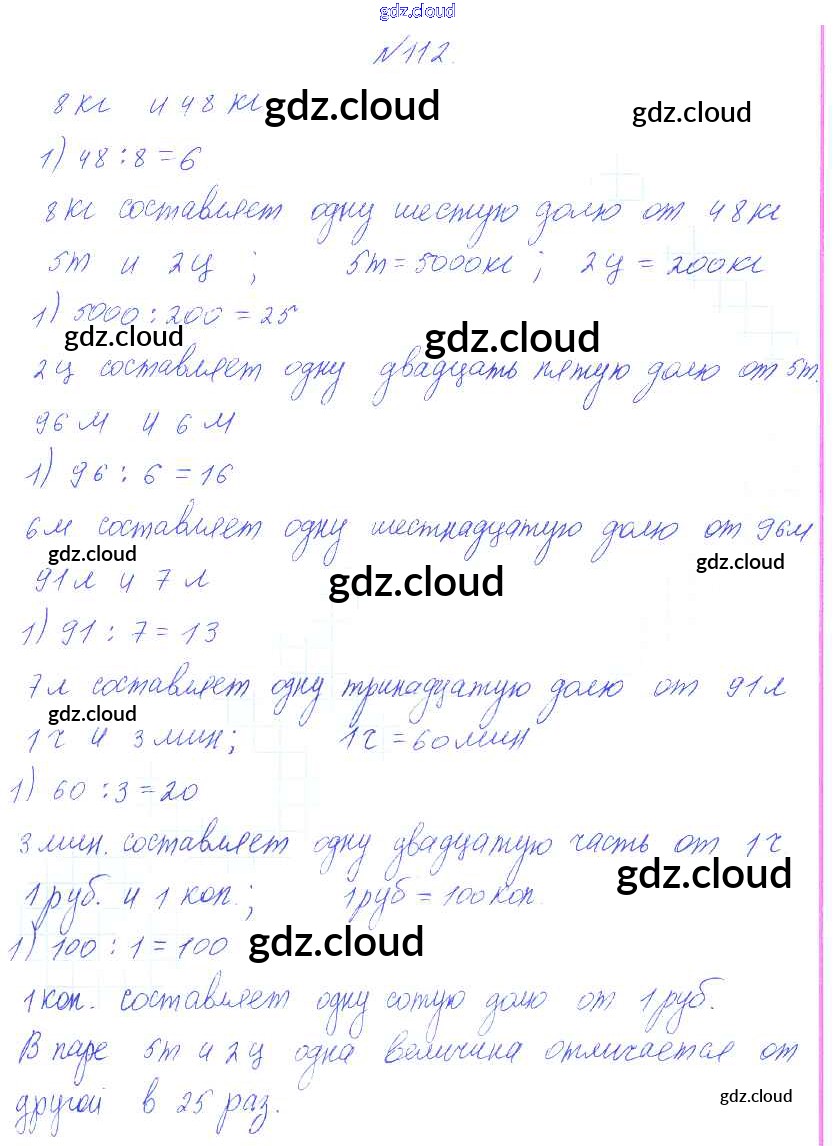 gdz.cloud
№112.
8 кг и 48 кг gdz.cloud gdz.cloud
1) 48 : 8 = 6
8 кг составляет одну шестую долю от 48 кг
5 т и 2 ц ; 5 т = 5000 кг ; 2 ц = 200 кг
1) 5000 : 200 = 25
gdz.cloud gdz.cloud
2 ц составляет одну двадцать пятую долю от 5 т.
96 м и 6 м
1) 96 : 6 = 16
6 м составляет одну шестнадцатую долю от 96 м
gdz.cloud gdz.cloud gdz.cloud
91 л и 7 л
1) 91 : 7 = 13
7 л составляет одну тринадцатую долю от 91 л
gdz.cloud
1 ч и 3 мин ; 1 ч = 60 мин
1) 60 : 3 = 20
3 мин. составляет одну двадцатую часть от 1 ч
gdz.cloud
1 руб. и 1 коп. ; 1 руб = 100 коп.
1) 100 : 1 = 100 gdz.cloud
1 коп. составляет одну сотую долю от 1 руб.
В паре 5 т и 2 ц одна величина отличается от
другой в 25 раз.
gdz.cloud